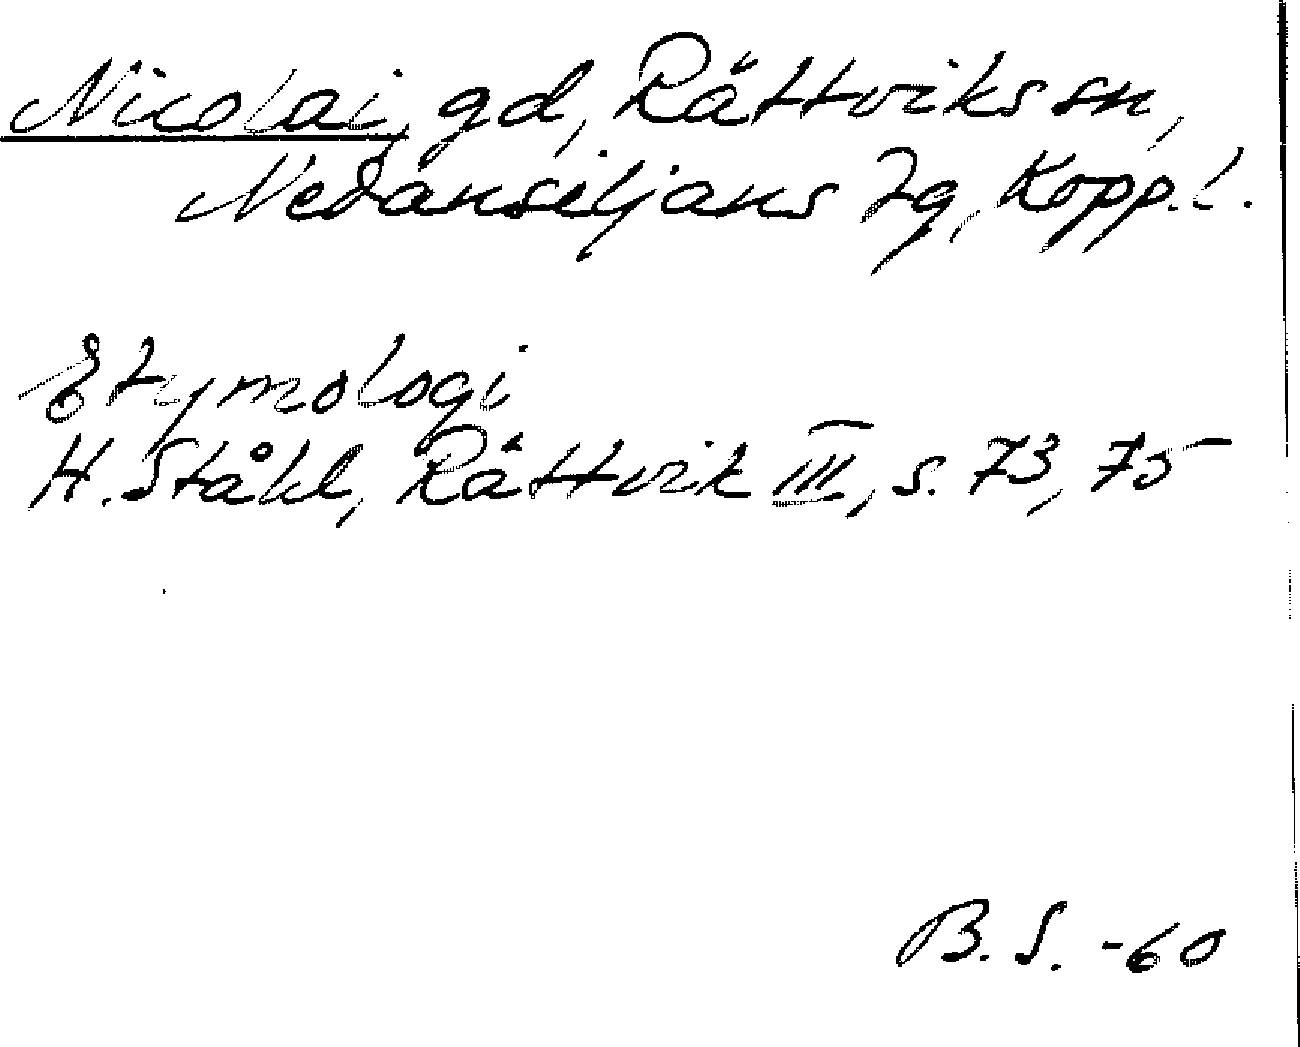 Nicolai, gd, Rättviks sn,
Nedansiljans tg, Kopp.l.
Etymologi
H. Ståhl, Rättvik III, s. 73, 75
B. S. -60